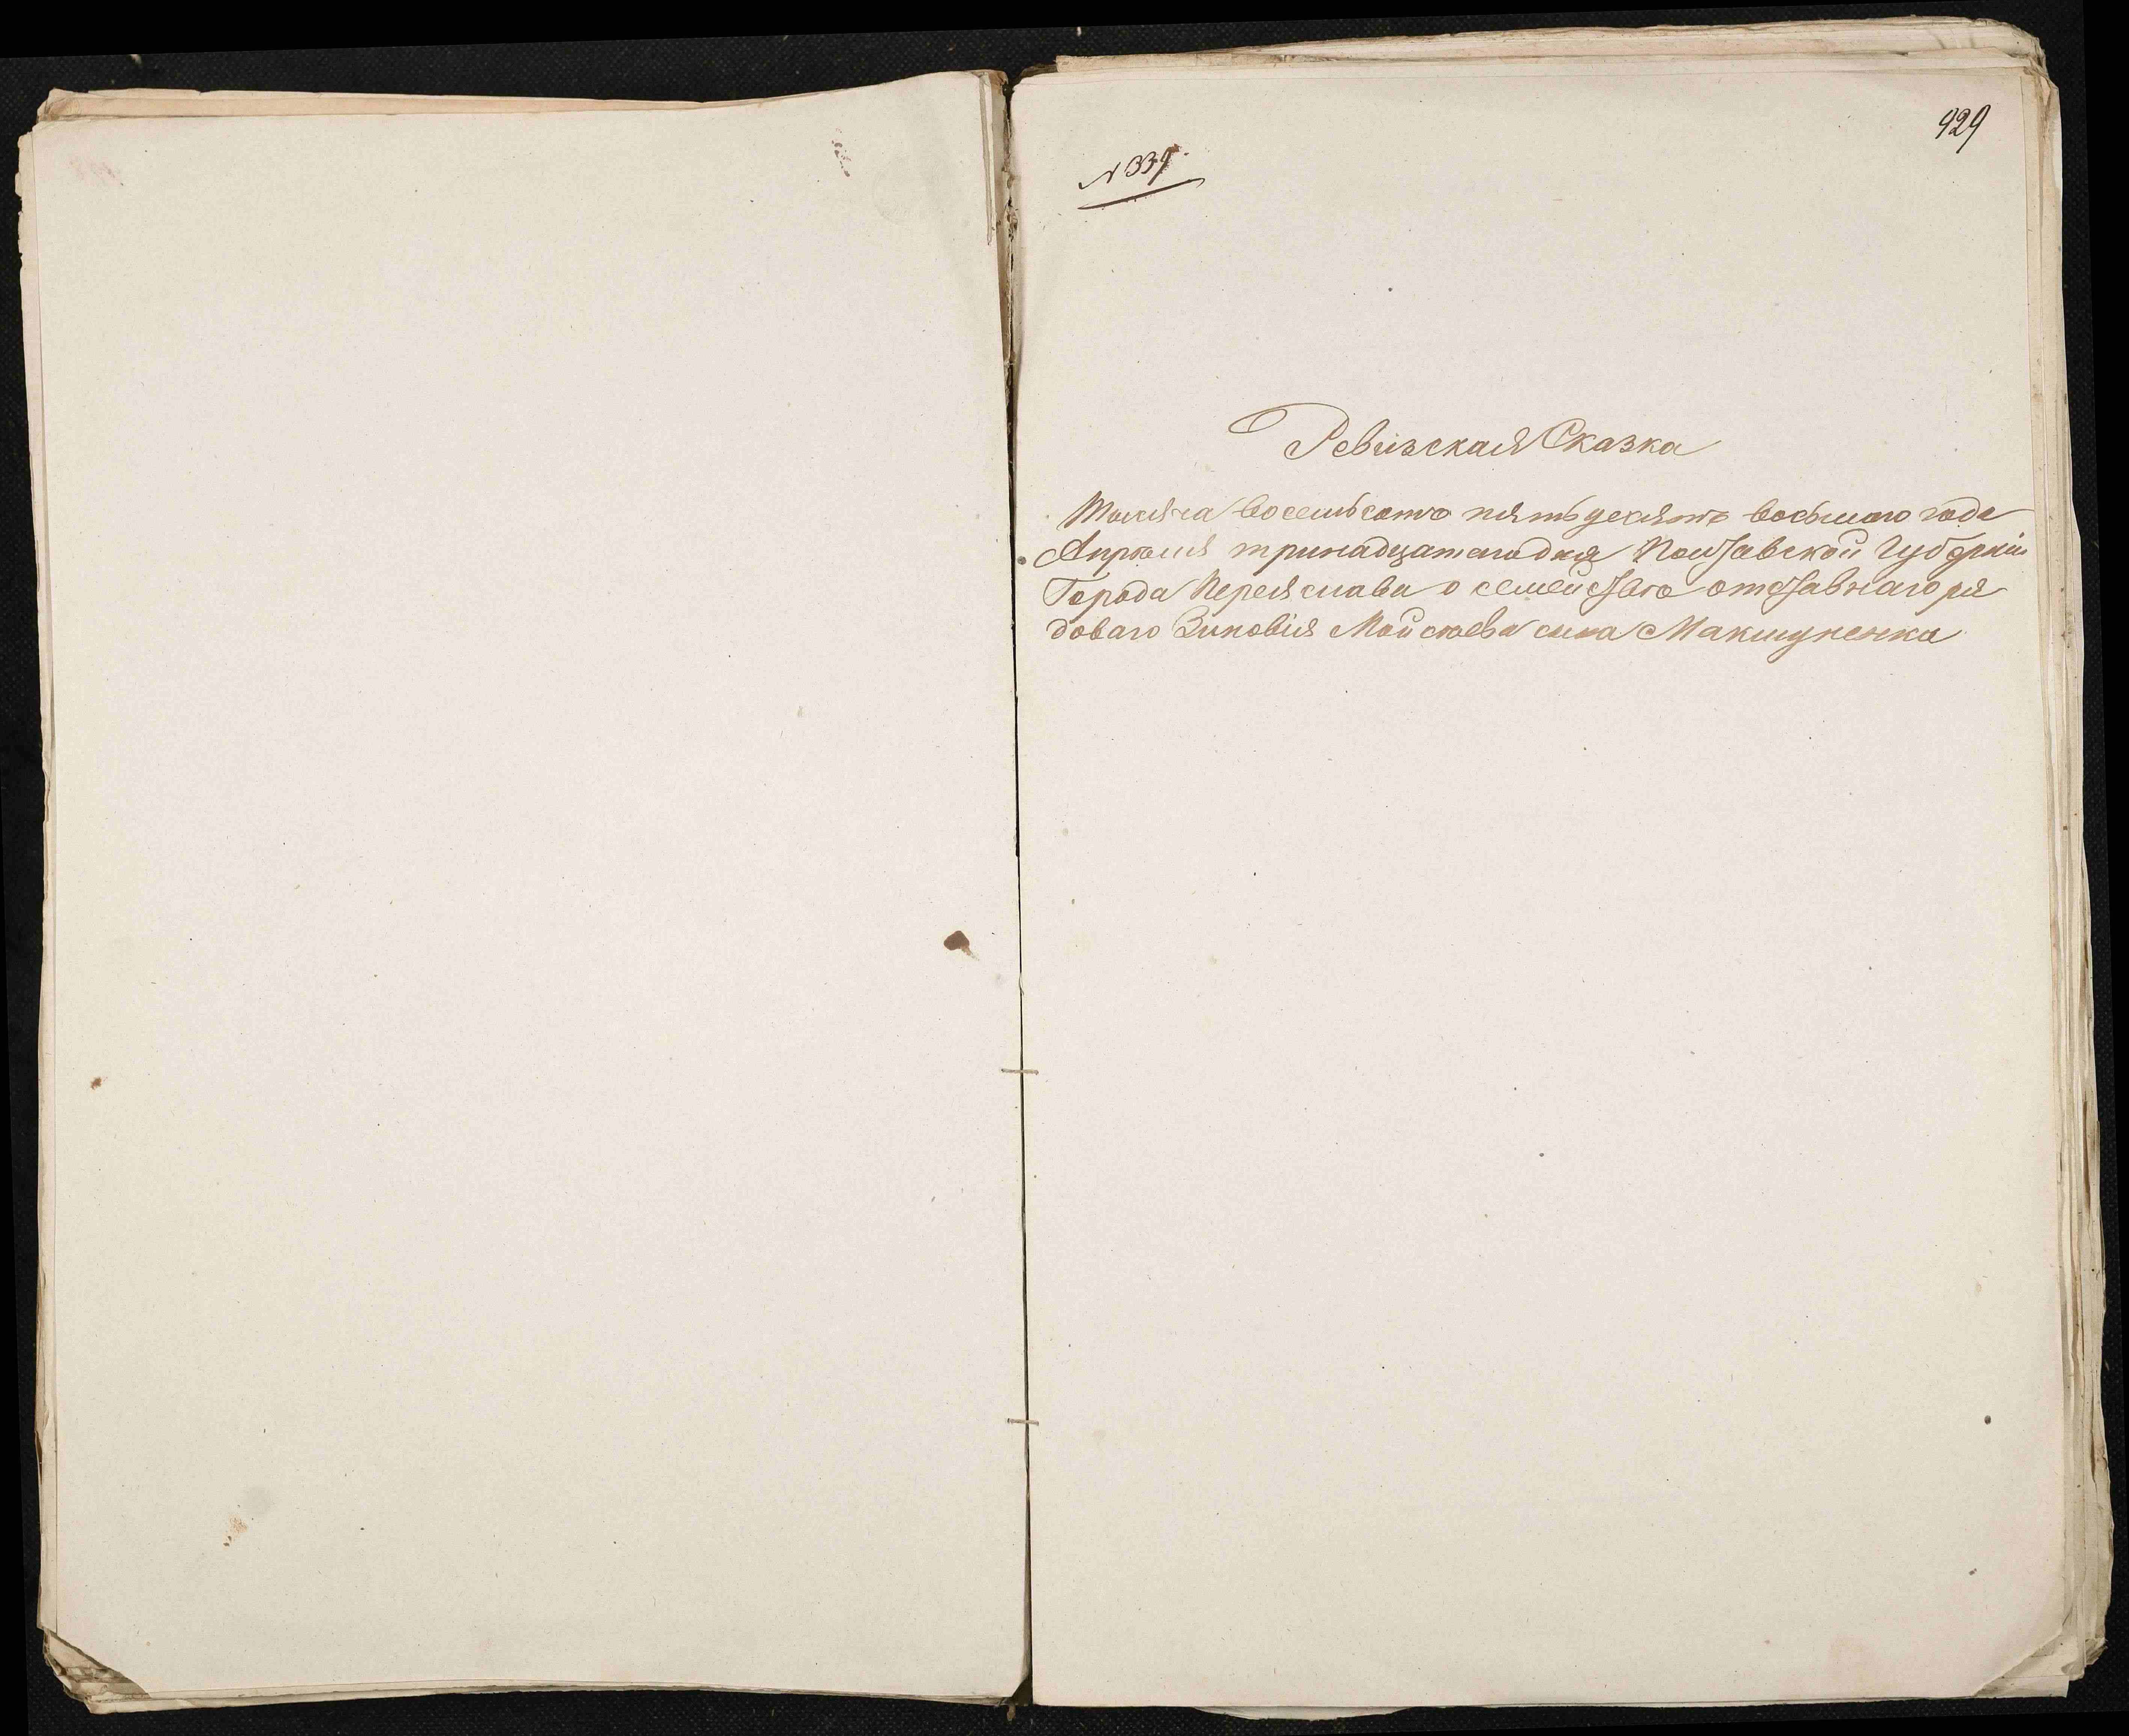 929
N 339.
Ревизская Сказка
Тысяча восемьсотъ пятьдесятъ восьмого года
Апрѣля тринадцатого дня Полтавской Губерніи
Города Переяслава о семействѣ отставнаго ря
доваго Зиновія Мойсѣева сына Макшуненка